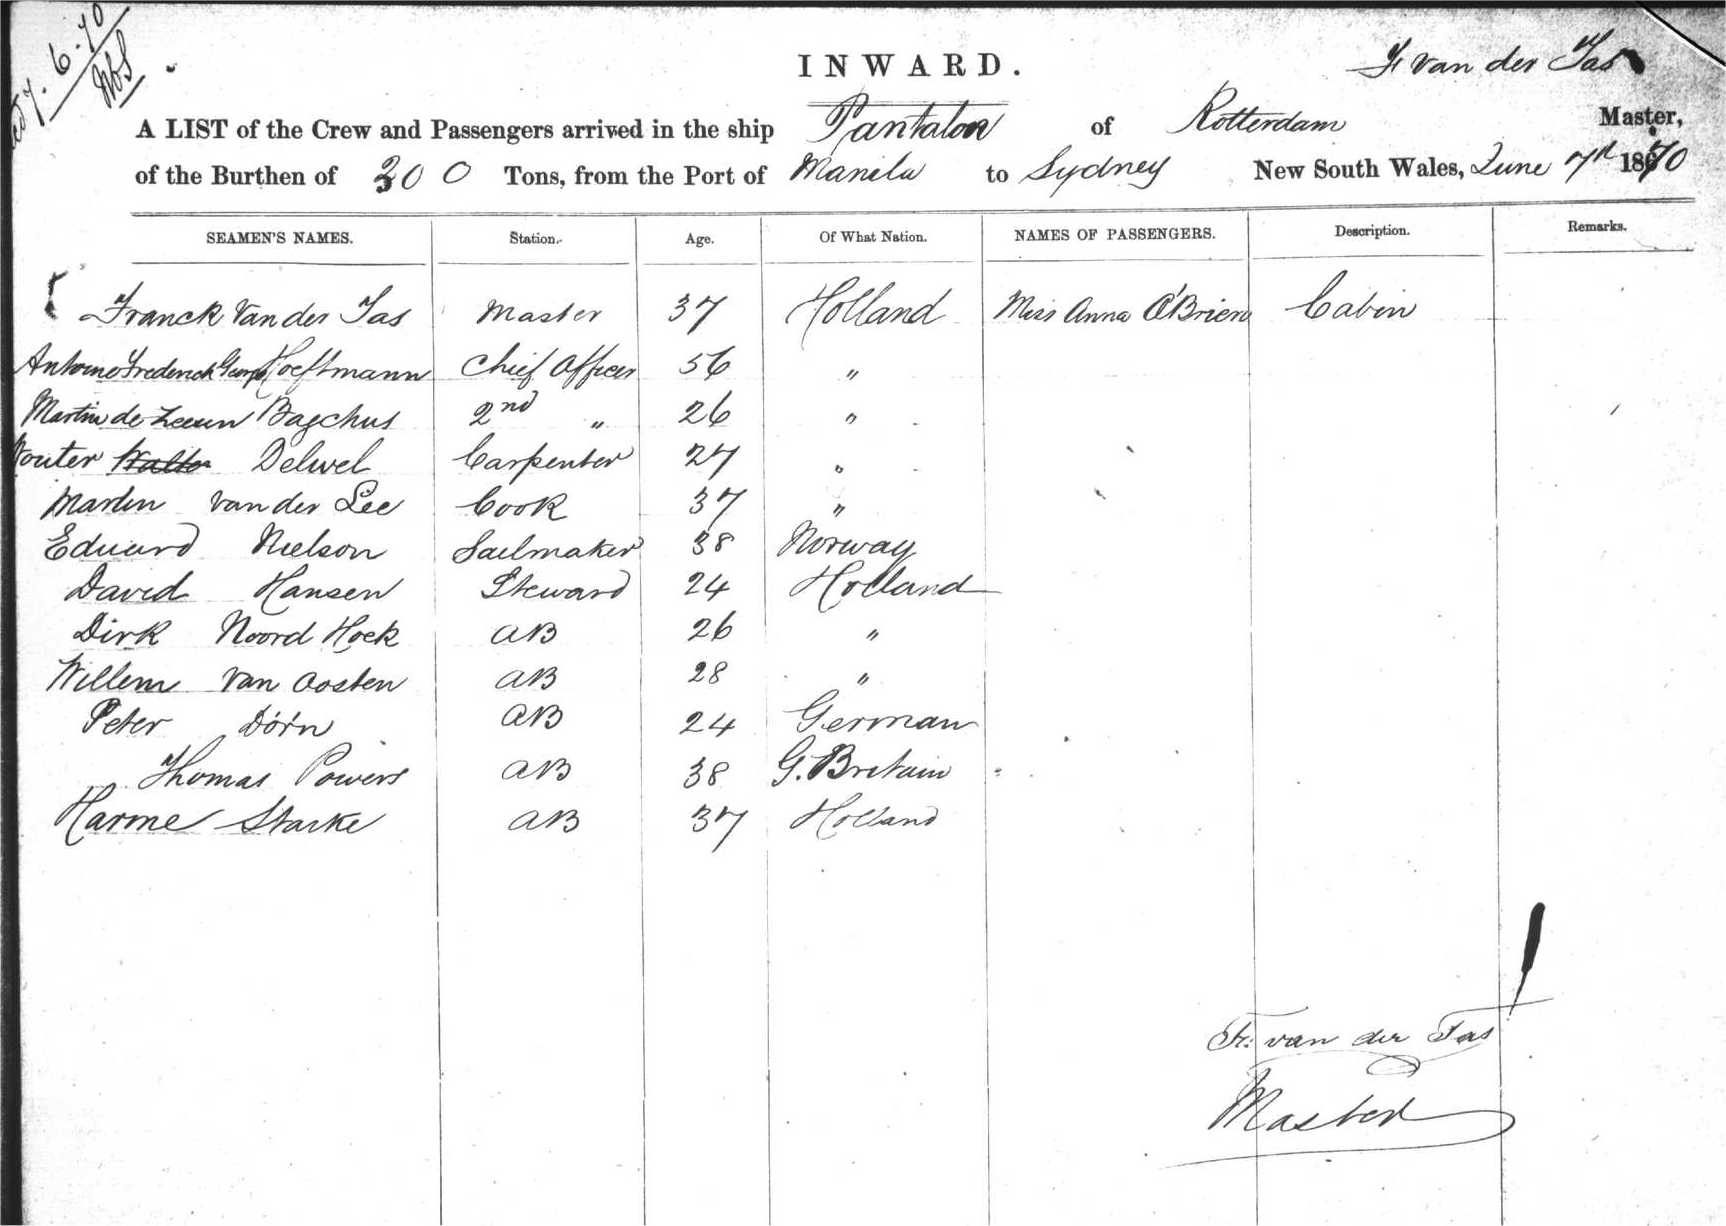 7. 6. 70
INWARD.
F van der Tas
A LIST of the Crew and Passengers arrived in the ship Pantalon of Rotterdam Master,
of the Burthen of 300 Tons, from the Port of Manila to Sydney New South Wales, June 7th 1870
SEAMEN'S NAMES. Station. Age. Of What Nation. NAMES OF PASSENGERS. Description. Remarks.
Franck Van der Tas Master 37 Holland Miss Anna O'Brien Cabin
Antoine Frederick George Hoeffmann Chief Officer 56 "
Martin de Leeuw Bagchus 2nd " 26 "
Wouter Walter Delwel Carpenter 27 "
Martin van der Lee Cook 37 "
Eduard Nielson Sailmaker 38 Norway
David Hansen Steward 24 Holland
Dirk Noord Hoek AB 26 "
Willem Van Oosten AB 28 "
Peter Dörn AB 24 German
Thomas Powers AB 38 G. Britain
Harme Starke AB 37 Holland
Fr. van der Tas
Master